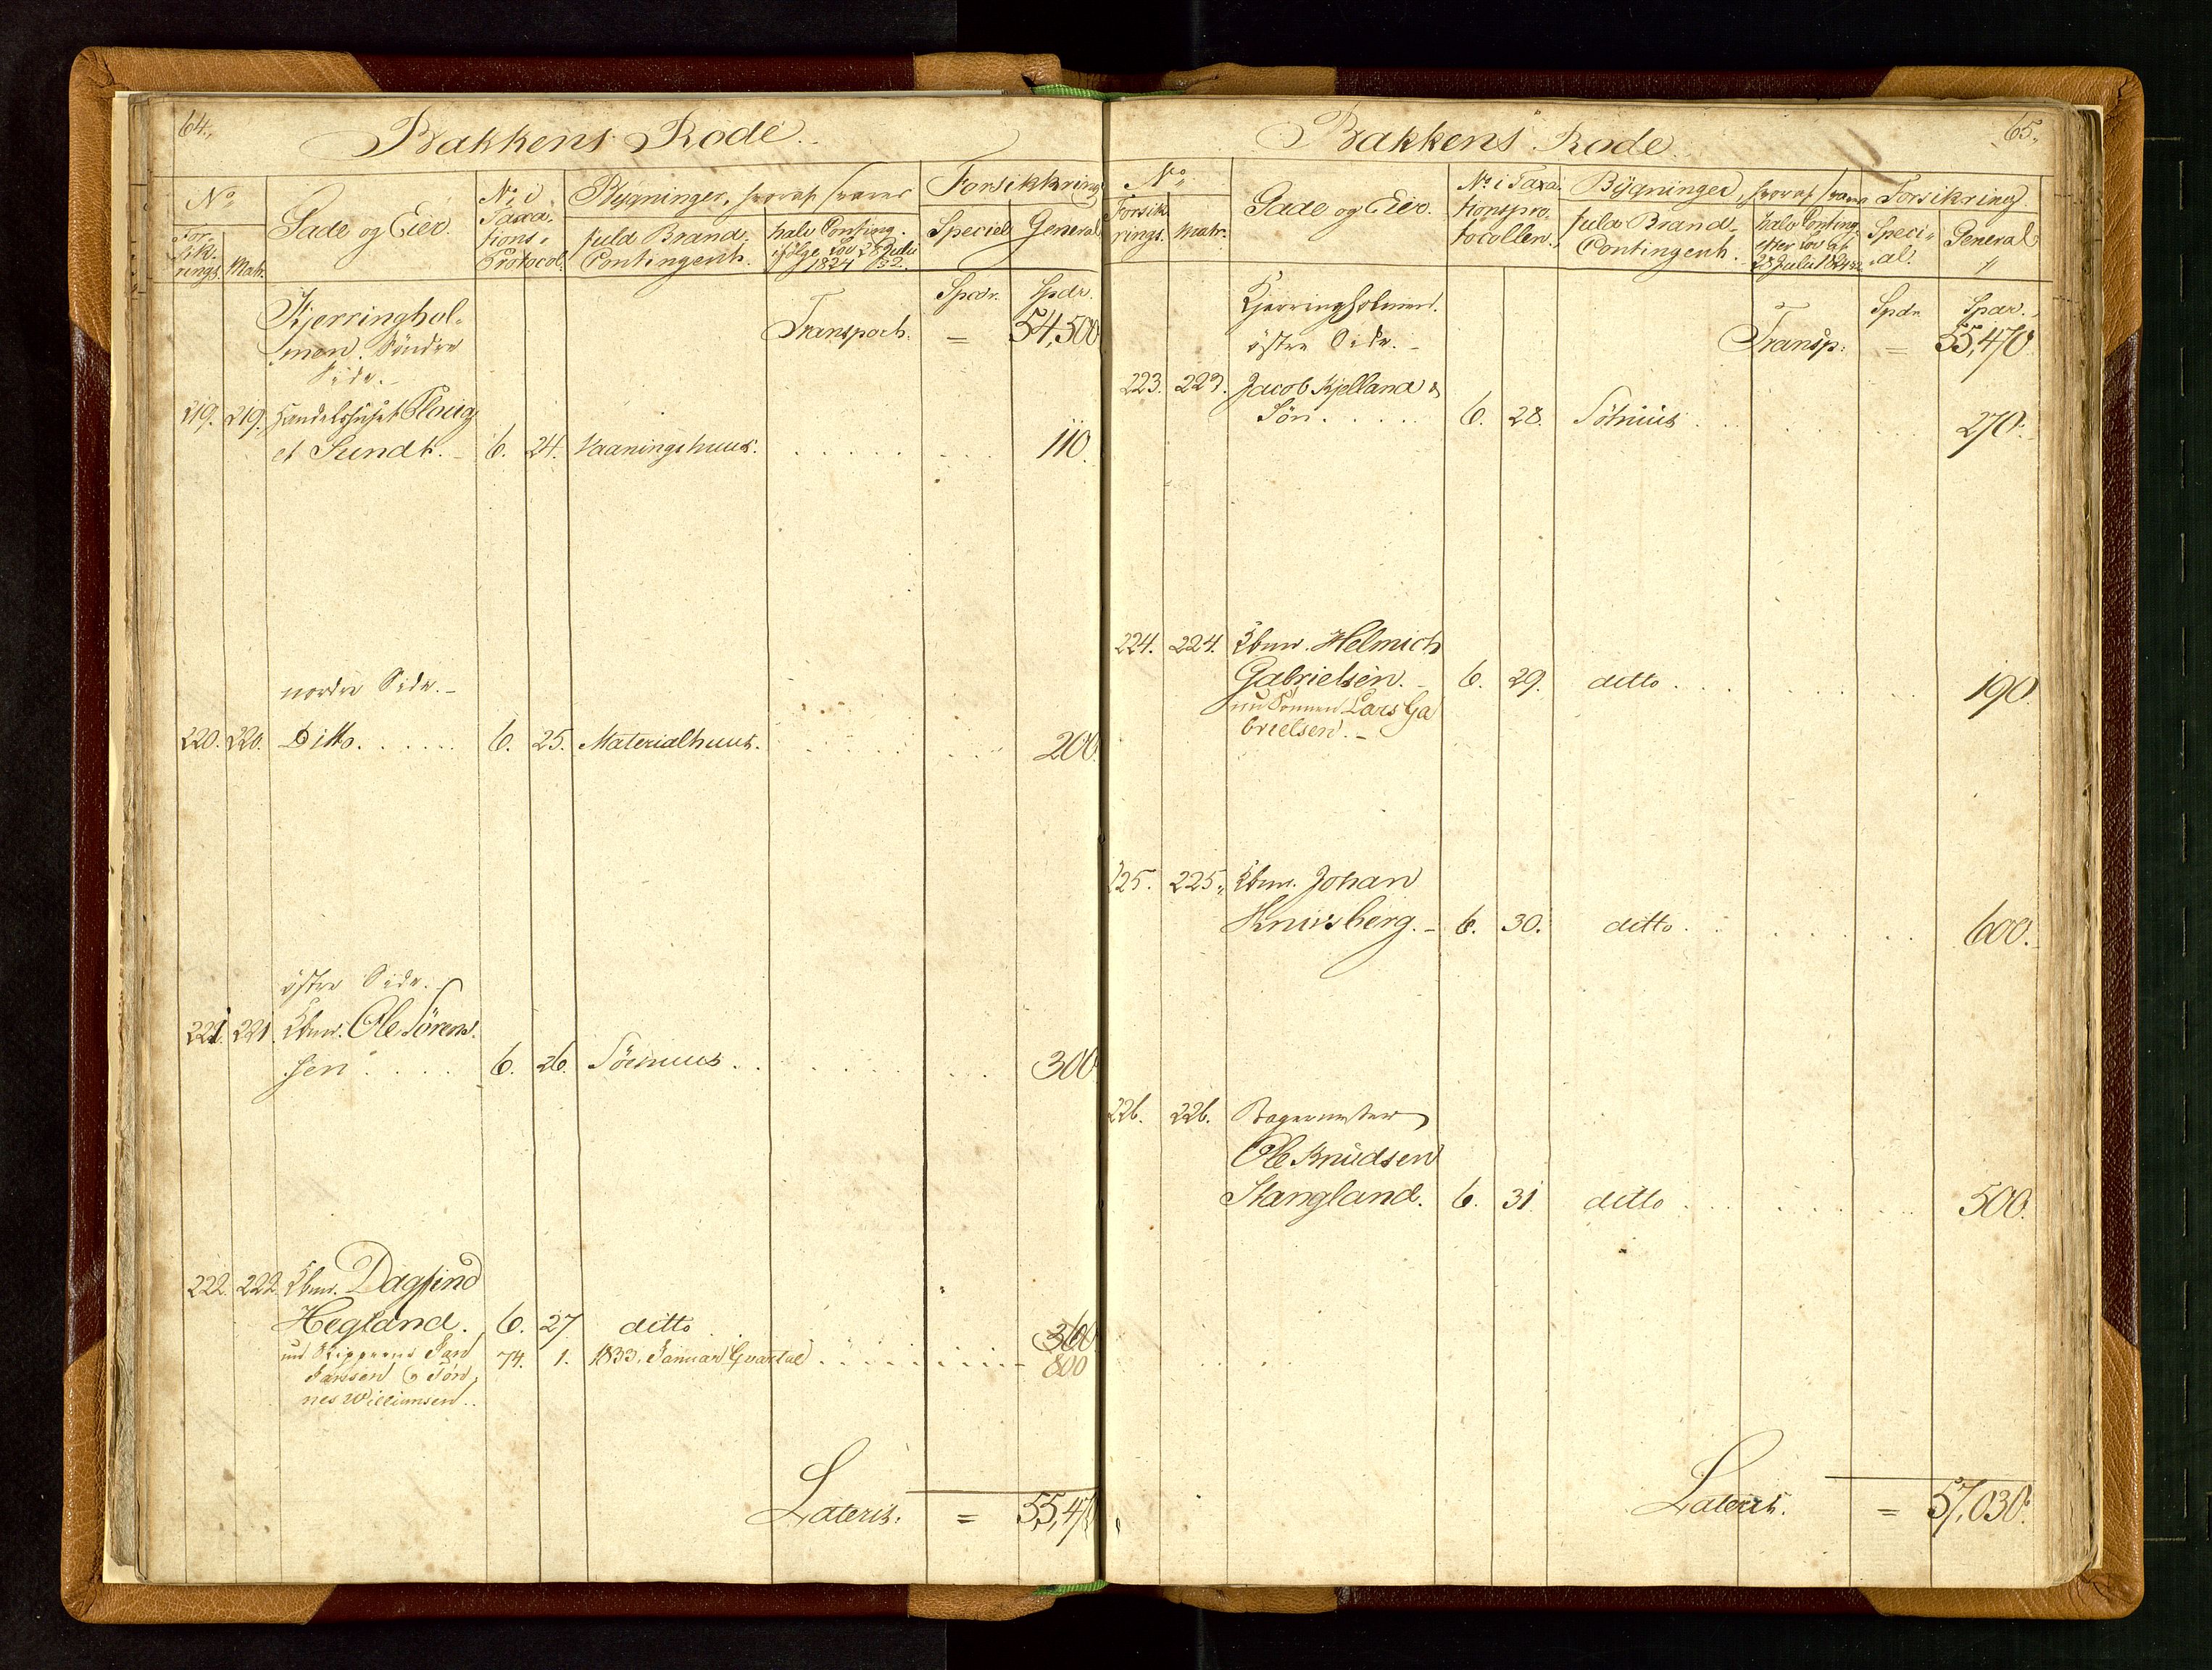 64.
Bakkens Rode.
No
For-
sik-
rings.
Matr.
Gade og Eier.
No i
Taxa-
tions-
Protocol.
Bygninger, hvoraf svares
fuld Brand-
Contingent.
halv Conting.
ifölge Lov 28 Julii
1824 § 2.
Forsikkring
Speciel
General
Spdr.
Spdr.
Kjerringhol-
men. Söndre
Side.
Transport. = 54,500
219. 219. Handelshuset Ploug
et Sundt. 6. 24. Vaaningshuus. 110.
nordre Side.
220. 220. Ditto. 6. 25. Materialhuus. 200.
östre Side.
221. 221. Ole Sörens-
sen 6. 26. Söehuus 300.
222. 222. Dagfind
Hegland. 6. 27 ditto 360.
Jan 74. 1. 1833. Januar Qvartal 800
Jansen & Tön-
nes Williamsen.
Lateris. = 55,470
65.
Bakkens Rode.
No
Forsik-
rings.
Matr.
Gade og Eier.
No i Taxa-
tionspro-
tocollen.
Bygninger, hvoraf svares
fuld Brand-
Contingent.
halv Conting.
efter Lov af
28 Julii 1824
Forsikring
Speci-
al.
General
Spdr.
Spdr.
Kjerringholmen.
östre Side.
Transp: = 55,470
223. 223. Jacob Kjelland &
Sön 6. 28. Söhuus 270.
224. 224. Helmich
Gabrielsen. 6. 29. ditto 190.
nu Sönnen Lars Ga
brielsen.
225. 225. Johan
Knivsberg. 6. 30. ditto 600.
226. 226. Bagermester
Ole Knudsen
Stangland. 6. 31. ditto 500.
Lateris. = 57,030.